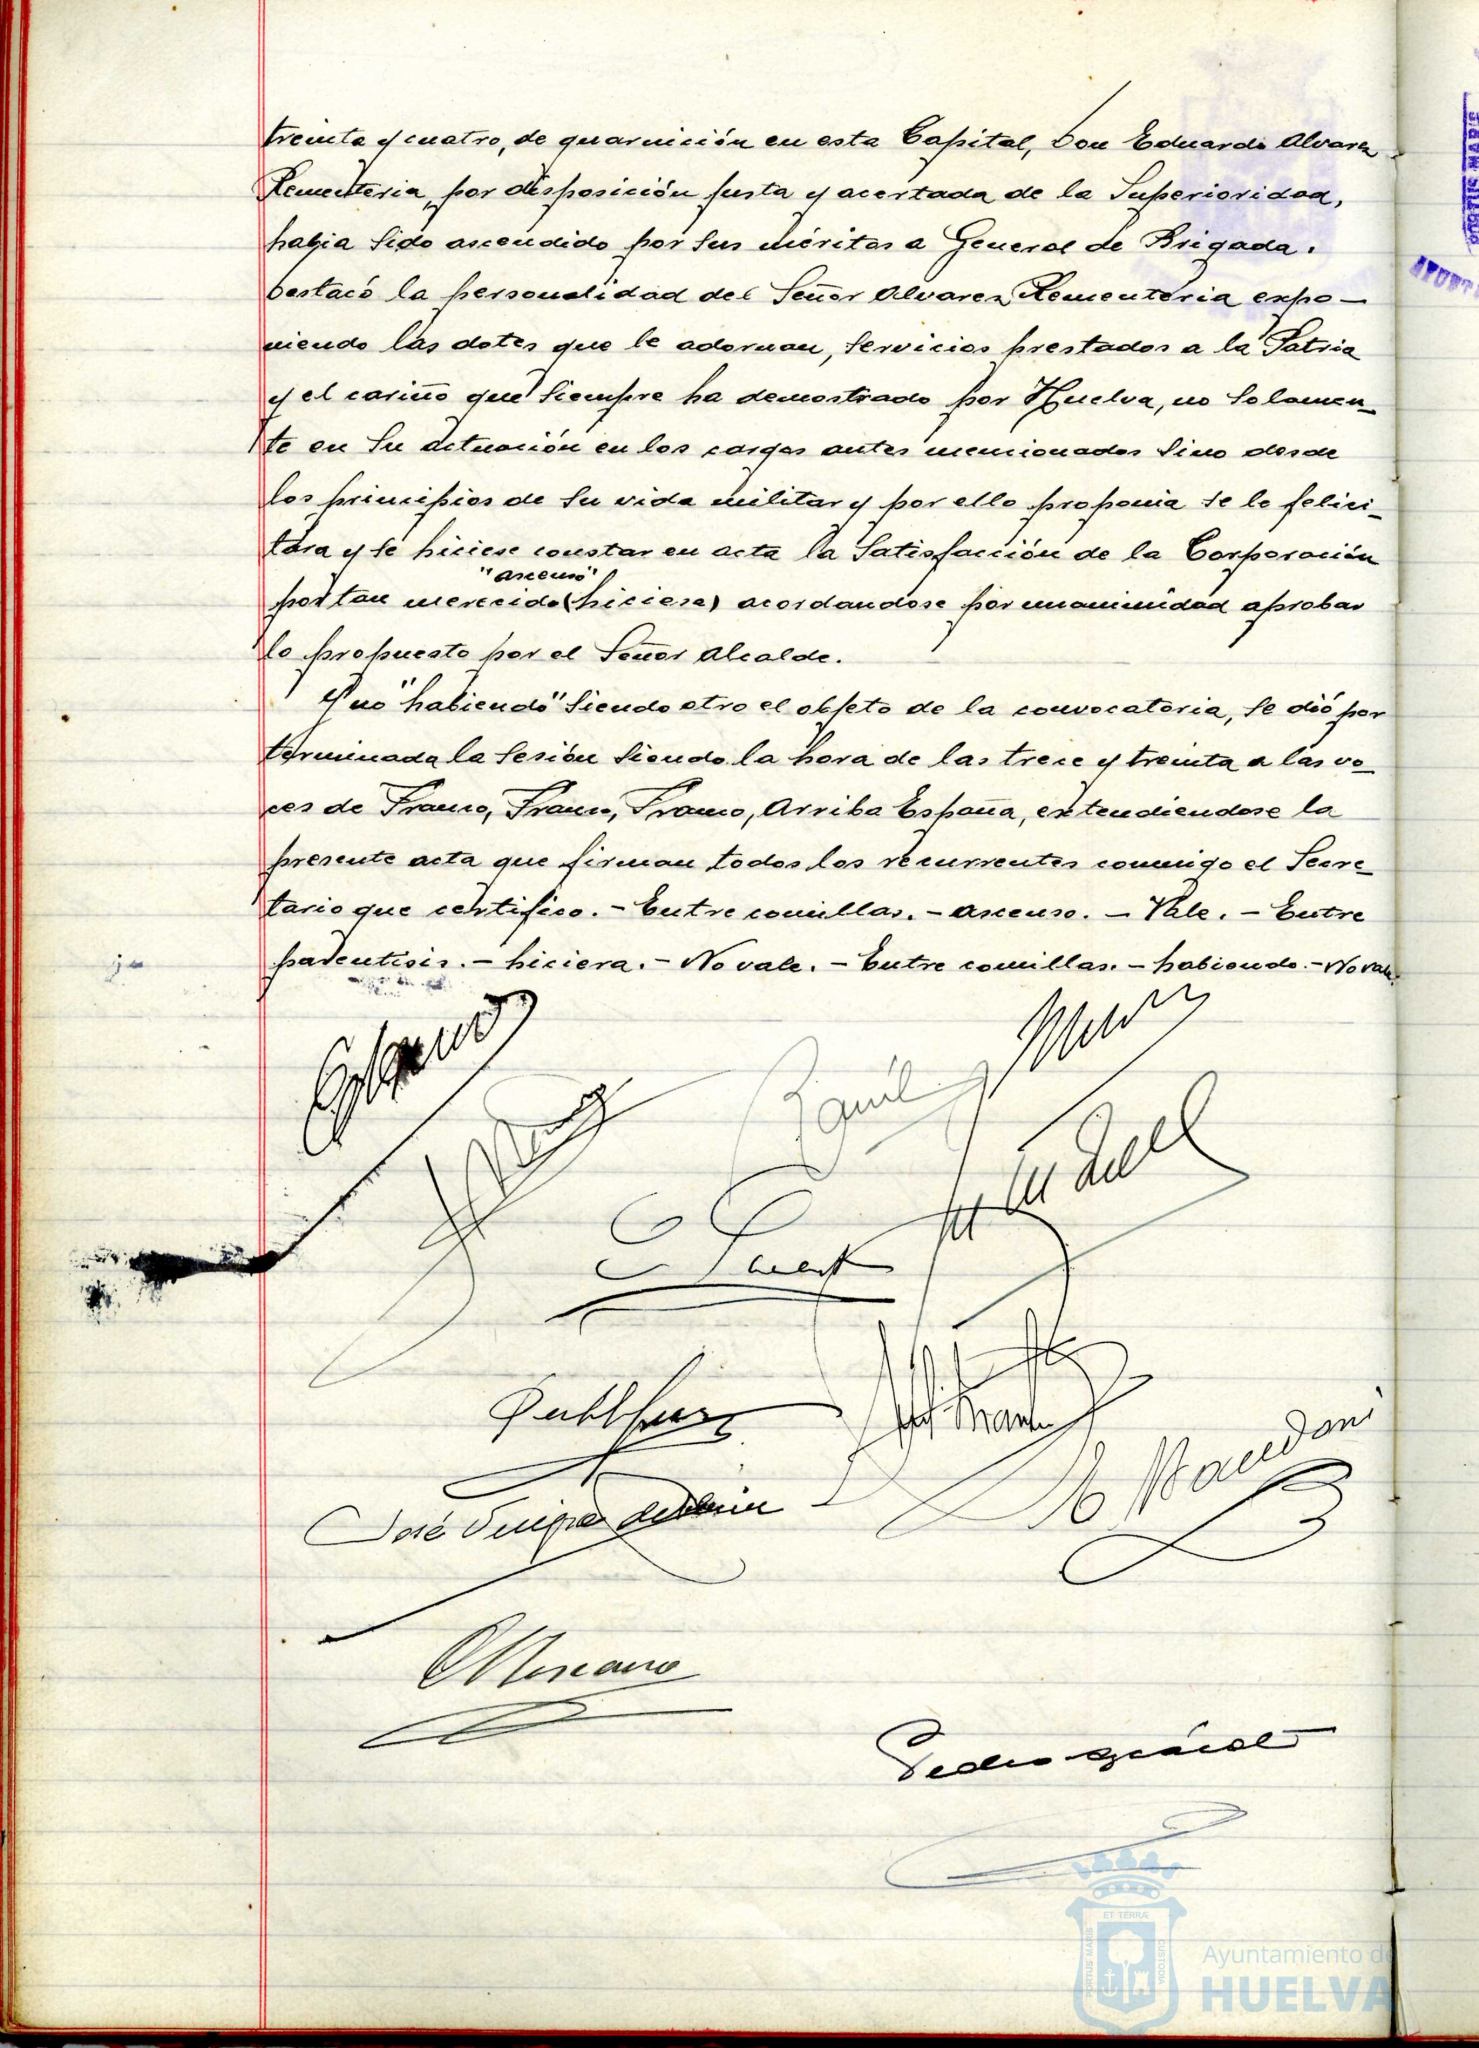 treinta y cuatro, de guarnición en esta Capital, Don Eduardo Alvarez
Rementeria, por disposición justa y acertada de la Superioridad,
habia sido ascendido por sus méritos a General de Brigada.
Destacó la personalidad del Señor Alvarez Rementeria expo-
niendo las dotes que le adornan, servicios prestados a la Patria
y el cariño que siempre ha demostrado por Huelva, no solamen-
te en su actuación en los cargos antes mencionados sino desde
los principios de su vida militar y por ello proponia se le felici-
tara y se hiciese constar en acta la satisfacción de la Corporación
"ascenso"
por tan merecido (hiciese) acordandose por unanimidad aprobar
lo propuesto por el Señor Alcalde.
Y no "habiendo" siendo otro el objeto de la convocatoria, se dió por
terminada la sesión siendo la hora de las trece y treinta a las vo-
ces de Franco, Franco, Franco, Arriba España, extendiendose la
presente acta que firman todos los recurrentes conmigo el Secre-
tario que certifico. - Entre comillas. - ascenso. - Vale. - Entre
parentisis. - hiciera. - No vale. - Entre comillas. - habiendo. - No vale.
José
Pedro
PORTUS MARIS
ET TERRAE
CUSTODIA
Ayuntamiento de
HUELVA